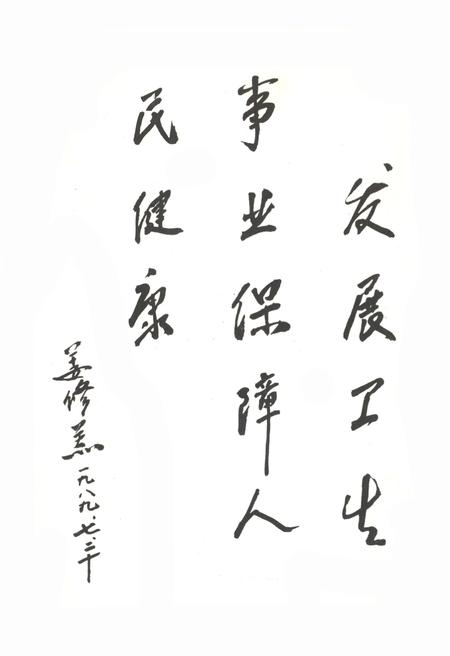 发展卫生
事业保障人
民健康
姜修羔 一九八九.七.二十